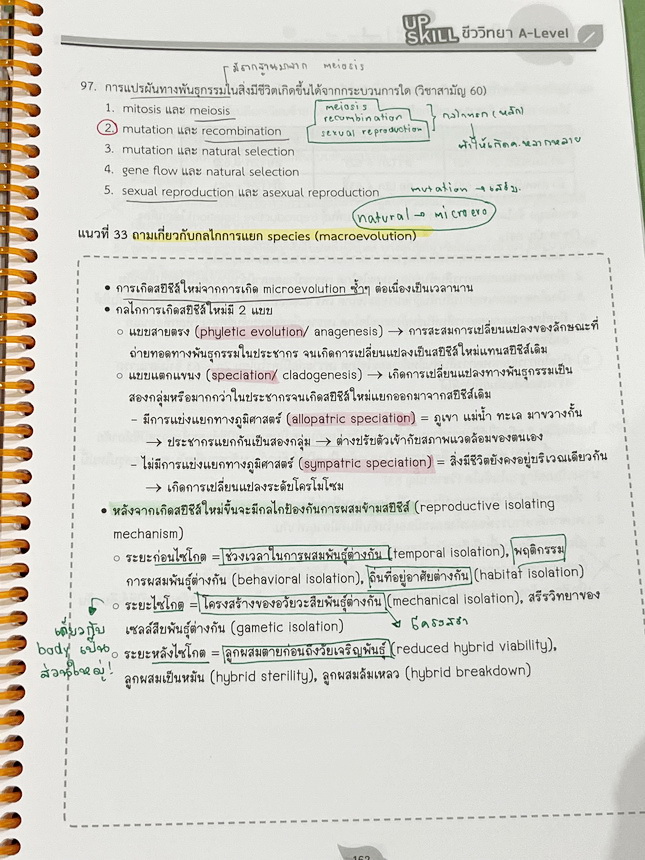 UP SKILL ชีววิทยา A-Level
มีรากฐานมาจาก meiosis
97. การแปรผันทางพันธุกรรมในสิ่งมีชีวิตเกิดขึ้นได้จากกระบวนการใด (วิชาสามัญ 60)
1. mitosis และ meiosis
meiosis
2. mutation และ recombination
recombination
sexual reproduction
กลไกแรก (หลัก)
3. mutation และ natural selection
ทำให้เกิดค. หลากหลาย
4. gene flow และ natural selection
5. sexual reproduction และ asexual reproduction
mutation → เสริม
natural → microevo
แนวที่ 33 ถามเกี่ยวกับกลไกการแยก species (macroevolution)
• การเกิดสปีชีส์ใหม่จากการเกิด microevolution ซ้ำๆ ต่อเนื่องเป็นเวลานาน
• กลไกการเกิดสปีชีส์ใหม่มี 2 แบบ
○ แบบสายตรง (phyletic evolution/ anagenesis) → การสะสมการเปลี่ยนแปลงของลักษณะที่
ถ่ายทอดทางพันธุกรรมในประชากร จนเกิดการเปลี่ยนแปลงเป็นสปีชีส์ใหม่แทนสปีชีส์เดิม
○ แบบแตกแขนง (speciation/ cladogenesis) → เกิดการเปลี่ยนแปลงทางพันธุกรรมเป็น
สองกลุ่มหรือมากกว่าในประชากรจนเกิดสปีชีส์ใหม่แยกออกมาจากสปีชีส์เดิม
- มีการแบ่งแยกทางภูมิศาสตร์ (allopatric speciation) = ภูเขา แม่น้ำ ทะเล มาขวางกั้น
→ ประชากรแยกกันเป็นสองกลุ่ม → ต่างปรับตัวเข้ากับสภาพแวดล้อมของตนเอง
- ไม่มีการแบ่งแยกทางภูมิศาสตร์ (sympatric speciation) = สิ่งมีชีวิตยังคงอยู่บริเวณเดียวกัน
→ เกิดการเปลี่ยนแปลงระดับโครโมโซม
• หลังจากเกิดสปีชีส์ใหม่ขึ้นจะมีกลไกป้องกันการผสมข้ามสปีชีส์ (reproductive isolating
mechanism)
○ ระยะก่อนไซโกต = ช่วงเวลาในการผสมพันธุ์ต่างกัน (temporal isolation), พฤติกรรม
การผสมพันธุ์ต่างกัน (behavioral isolation), ถิ่นที่อยู่อาศัยต่างกัน (habitat isolation)
○ ระยะไซโกต = โครงสร้างของอวัยวะสืบพันธุ์ต่างกัน (mechanical isolation), สรีรวิทยาของ
เซลล์สืบพันธุ์ต่างกัน (gametic isolation)
โครงสร้าง
เกี่ยวกับ
body เป็น
ส่วนใหญ่!
○ ระยะหลังไซโกต = ลูกผสมตายก่อนถึงวัยเจริญพันธุ์ (reduced hybrid viability),
ลูกผสมเป็นหมัน (hybrid sterility), ลูกผสมล้มเหลว (hybrid breakdown)